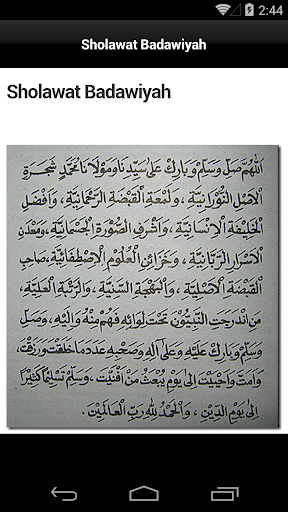 2:44
Sholawat Badawiyah
Sholawat Badawiyah
اَللّٰهُمَّ صَلِّ وَسَلِّمْ وَبَارِكْ عَلٰى سَيِّدِنَا وَمَوْلَانَا مُحَمَّدٍ شَجَرَةِ
الْاَصْلِ النُّوْرَانِيَّةِ ، وَلَمْعَةِ الْقَبْضَةِ الرَّحْمَانِيَّةِ ، وَاَفْضَلِ
الْخَلِيْقَةِ الْاِنْسَانِيَّةِ ، وَاَشْرَفِ الصُّوْرَةِ الْجِسْمَانِيَّةِ ، وَمَعْدِنِ
الْاَسْرَارِ الرَّبَّانِيَّةِ ، وَخَزَائِنِ الْعُلُوْمِ الْاِصْطِفَائِيَّةِ ، صَاحِبِ
الْقَبْضَةِ الْاَصْلِيَّةِ ، وَالْبَهْجَةِ السَّنِيَّةِ ، وَالرُّتْبَةِ الْعَلِيَّةِ ،
مَنِ انْدَرَجَتِ النَّبِيُّوْنَ تَحْتَ لِوَائِهِ فَهُمْ مِنْهُ وَاِلَيْهِ ، وَصَلِّ
وَسَلِّمْ وَبَارِكْ عَلَيْهِ وَعَلٰى اٰلِهِ وَصَحْبِهِ عَدَدَ مَا خَلَقْتَ وَرَزَقْتَ ،
وَاَمَتَّ وَاَحْيَيْتَ اِلٰى يَوْمِ يُبْعَثُ مَنْ اَفْنَيْتَ ، وَسَلِّمْ تَسْلِيْمًا كَثِيْرًا
اِلٰى يَوْمِ الدِّيْنِ ، وَالْحَمْدُ لِلّٰهِ رَبِّ الْعَالَمِيْنَ .